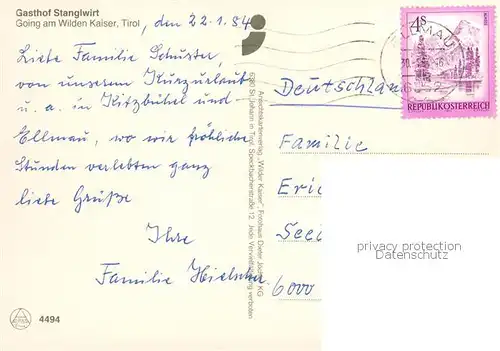 Gasthof Stanglwirt
Going am Wilden Kaiser, Tirol
, den 22.1.84
Liebe Familie Schuster,
von unserem Kurzurlaub
u. a. in Kitzbühel und
Ellmau, wo wir fröhliche
Stunden verlebten ganz
liebe Grüße
Ihre
Familie
4494
Ansichtskartenverlag „Wilder Kaiser“, Fotohaus Dieter KG
6380 St. Johann in Tirol, Speckbacherstraße 12. Jede Vervielfältigung verboten
4S
REPUBLIK ÖSTERREICH
Deutschland
Familie
Eri
See
6000
privacy protection
Datenschutz